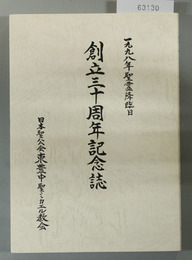 63130
一九九八年聖霊降臨日
創立三十周年記念誌
日本聖公会東豊中聖ミカエル教会